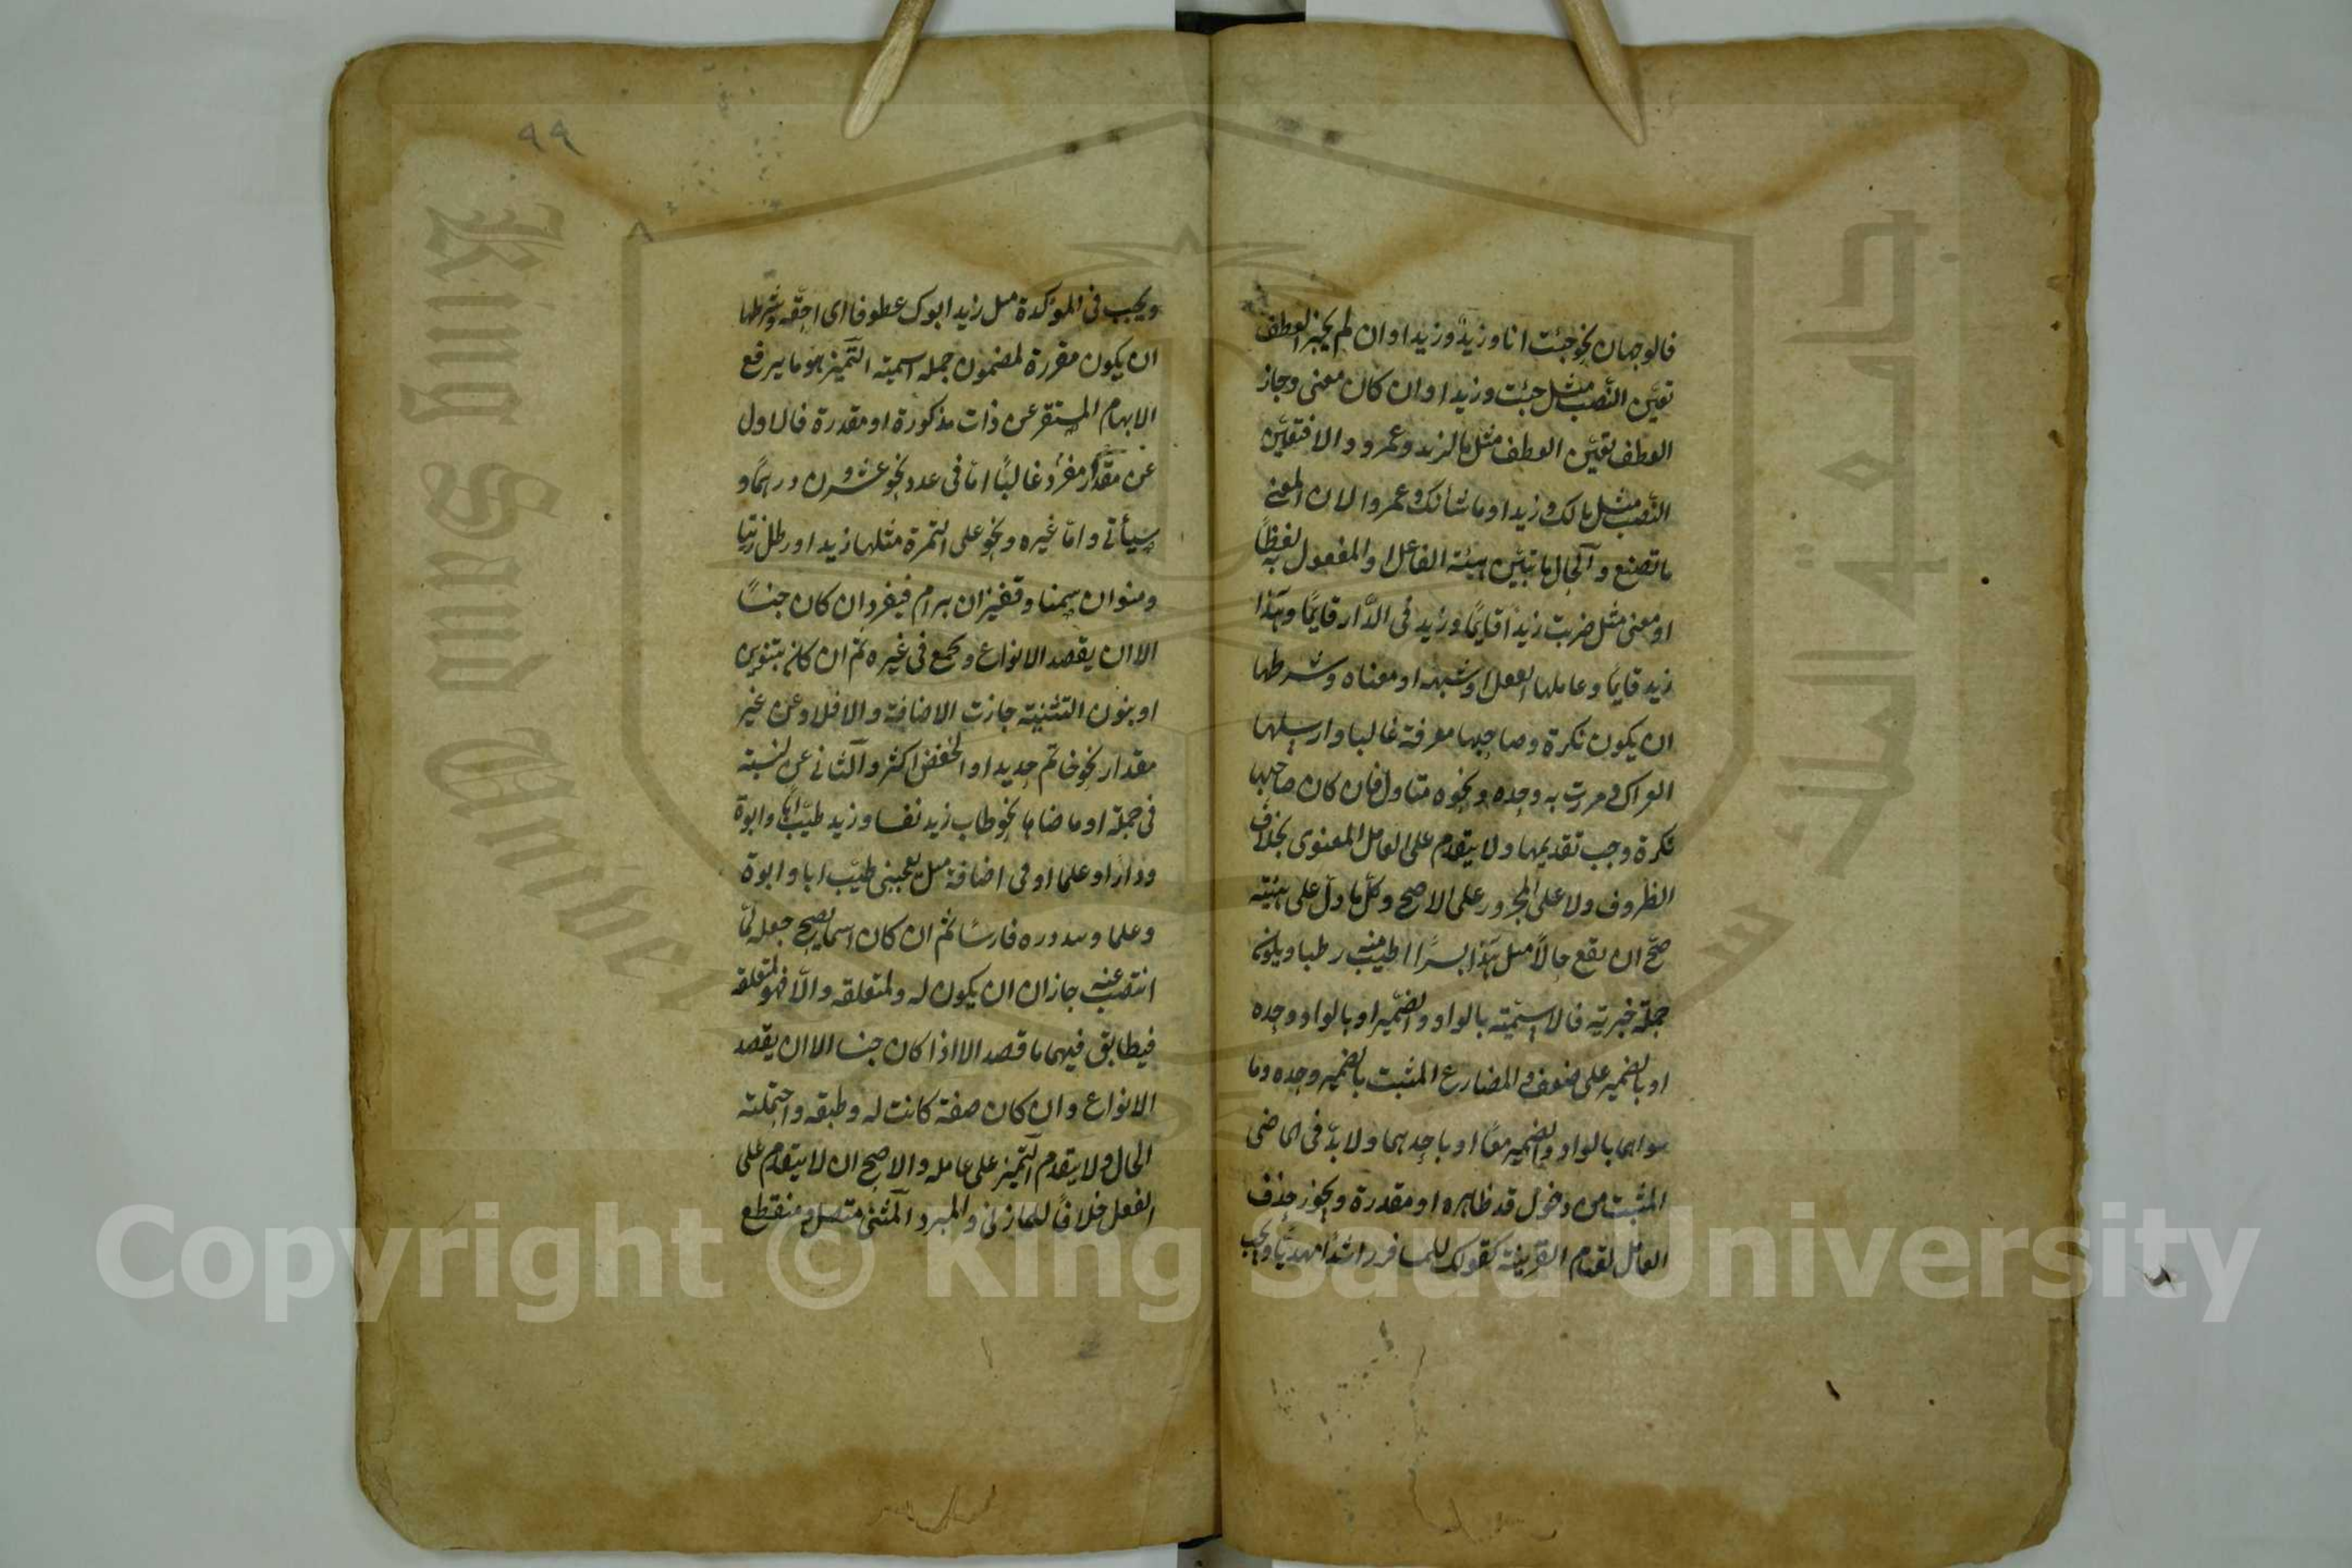 فالوجهان نحو جئت انا وزيدٌ وزيدا وان لم يجز العطف
تعيّن النّصب مثل جئت وزيدا وان كان معنى وجاز
العطف تعيّن العطف مثل ما لزيد وعمرو والا فتعيّن
النّصب مثل مالك وزيدا وما شأنك وعمروا لان المعنى
ما تصنع والحال ما تبيّن هيئة الفاعل او المفعول به لفظًا
او معنى مثل ضربت زيدًا قايمًا وزيد فى الدّار قايمًا وهذا
زيد قايما وعاملها الفعل او شبهه او معناه وشرطها
ان يكون نكرة وصاحبها معرفة غالبا وارسلها
العراك ومررت به وحده ونحوه متاول فان كان صاحبها
نكرة وجب تقديمها ولا يتقدم على العامل المعنوى بخلاف
الظروف ولا على المجرور على الاصح وكلّ ما دلّ على هيئة
صحّ ان يقع حالًا مثل هذا بسرًا اطيب منه رطبا ويكون
جملة خبريّة فالاسميّة بالواو والضّمير او بالواو وحده
او بالضمير على ضعف والمضارع المثبت بالضمير وحده وما
سواهما بالواو والضمير معًا او باحدهما ولا بدّ فى الماضى
المثبت من دخول قد ظاهره او مقدرة ويجوز حذف
العامل لقيام القرينة كقولك للمسافر راشدًا مهديّا ويجب
٩٩
ويجب فى المؤكدة مثل زيد ابوك عطوفا اى احقّه وشرطها
ان يكون مقررة لمضمون جملة اسمية التّميز هو ما يرفع
الابهام المستقر عن ذات مذكورة او مقدرة فالاول
عن مقدّار مفرد غالبًا امّا فى عدد نحو عشرون درهمًا و
سيأتى وامّا غيره ونحو على التمرة مثلها زيدا ورطل زيتا
ومنوان سمنا وقفيزان برا م فيفرد ان كان جنسًا
الا ان يقصد الانواع ويجمع فى غيره ثم ان كان بتنوين
او بنون التثنية جازت الاضافة والا فلا وعن غير
مقدار نحو خاتم حديدا والخفض اكثر والثانى عن نسبة
فى جملة او ما ضاها نحو طاب زيد نفسا وزيد طيّب ابًا وابوة
ودارًا وعلما او فى اضافة مثل يعجبنى طيّب ابا وابوة
وعلما ولله دره فارسًا ثم ان كان اسما يصح جعله لمّا
انتصب عنه جاز ان ان يكون له ولمتعلقه والّا فهو لمتعلقه
فيطابق فيهما ما قصد الا اذا كان جنسا الا ان يقصد
الانواع وان كان صفة كانت له وطبقه واحتملت
الحال ولا يتقدم التّميز على عامله والاصح ان لا يتقدم على
الفعل خلافًا للمازنى والمبرد المثنى متصل ومنقطع
King Saud Univer
Copyright © King Saud University